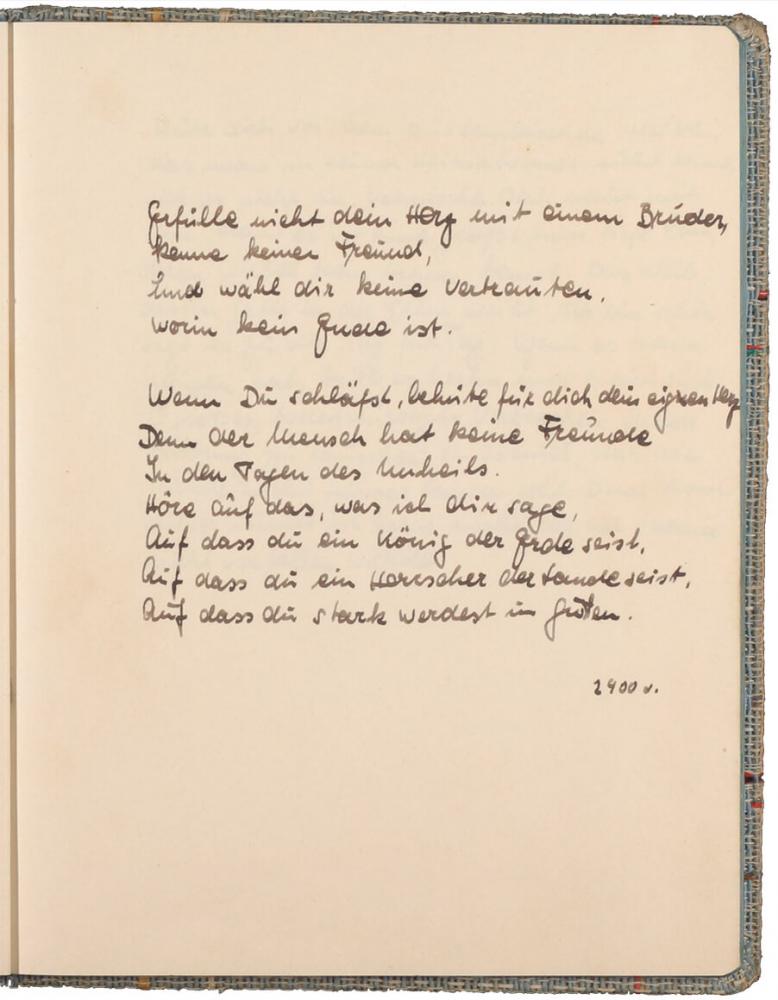 Erfülle nicht dein Herz mit einem Bruder,
kenne keinen Freund,
Und wähl dir keine Vertrauten,
worin kein Ende ist.
Wenn Du schläfst, behüte für dich dein eignes Herz
Denn der Mensch hat keine Freunde
In den Tagen des Unheils.
Höre auf das, was ich dir sage,
Auf dass du ein König der Erde seist,
Auf dass du ein Herrscher der Lande seist,
Auf dass du stark werdest im Guten.
2400 v.